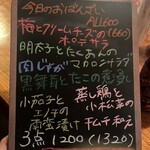 今日のおばんざい
ALL600
梅とクリームチーズの(660)
ポテサラ
明太子とたくあんの
肉じゃが マカロニサラダ
黒舞茸とたこの
小茄子と 蒸し鶏と
エノキの 小松菜の
南蛮漬け キムチ和え
3点 1200 (1320)